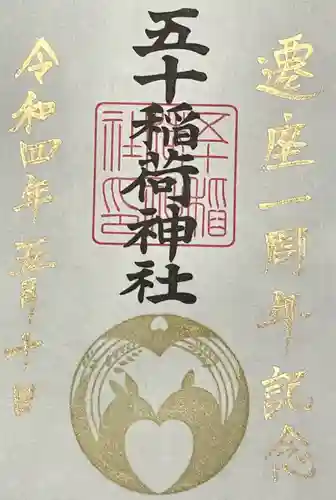 遷座一周年記念
五十稲荷神社
令和四年五月十日